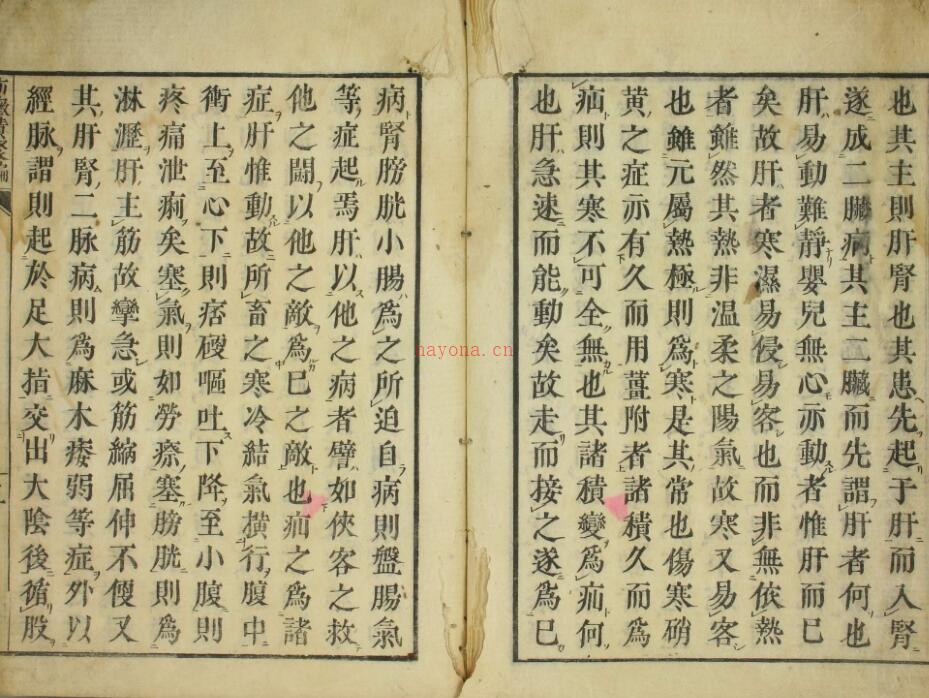 也其主則肝腎也其患先起于肝而入腎
遂成二臟病其主二臟而先謂肝者何也
肝易動難靜嬰兒無心亦動者惟肝而已
矣故肝者寒濕易侵易客也而非無依熱
者雖然其熱非温柔之陽氣故寒又易客
也雖元屬熱極則爲寒是其常也傷寒硝
黃之症亦有久而用薑附者諸積久而爲
疝則其寒不可全無也其諸積變爲疝何
也肝急速而能動矣故走而接之遂爲已
病腎膀胱小腸爲之所迫自病則盤腸氣
等症起焉肝以他之病者譬如俠客之救
他之鬪以他之敵爲已之敵也疝之爲諸
症肝惟動故所畜之寒冷結氣橫行腹中
衝上至心下則痞硬嘔吐下降至小腹則
疼痛泄痢矣塞氣則如勞瘵塞膀胱則爲
淋瀝肝主筋故攣急或筋縮屈伸不便又
其肝腎二脉病則爲麻木痿弱等症外以
經脉謂則起於足大指交出大陰後循股
nayona.cn